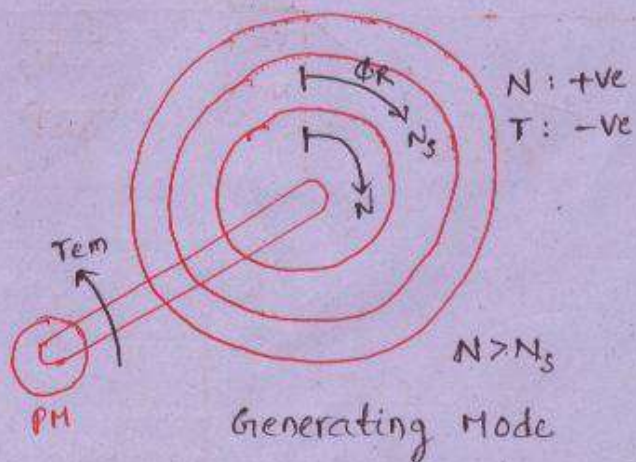 ΦR
N : +ve
T : -ve
Ns
N
Tem
N > Ns
PM
Generating Mode